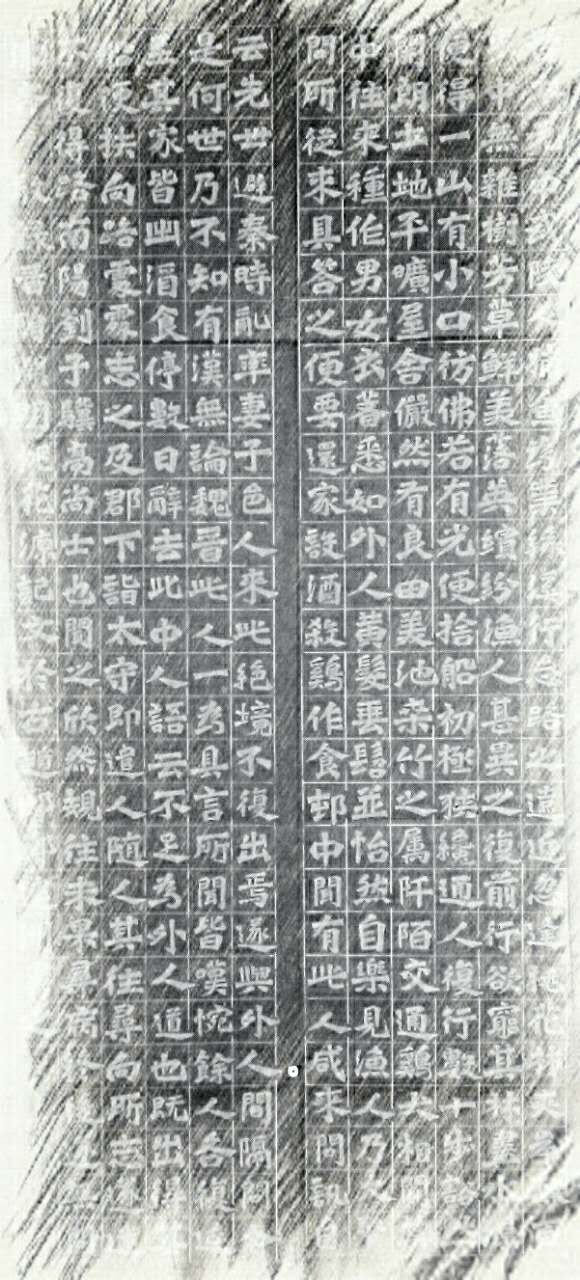 中武陵人捕魚為業緣溪行忘路之遠近忽逢桃花林夾
中無雜樹芳草鮮美落英繽紛漁人甚異之復前行欲窮其林盡水
便得一山有小口彷佛若有光便捨船初極狹纔通人復行數十步豁
開朗土地平曠屋舍儼然有良田美池桑竹之属阡陌交通鷄犬相聞
中往来種作男女衣著悉如外人黄髮垂髫並怡然自樂見漁人乃大
問所從来具答之便要還家設酒殺鷄作食邨中聞有此人咸来問訊自
云先世避秦時亂率妻子邑人来此絶境不復出焉遂與外人間隔問
是何世乃不知有漢無論魏晉此人一為具言所聞皆嘆惋餘人各復延
至其家皆出酒食停數日辭去此中人語云不足為外人道也既出得
便扶向路處處志之及郡下詣太守即遣人随人其往尋向所志遂
不復得路南陽劉子驥高尚士也聞之欣然規往未果尋病終後遂無問
花源記文於古